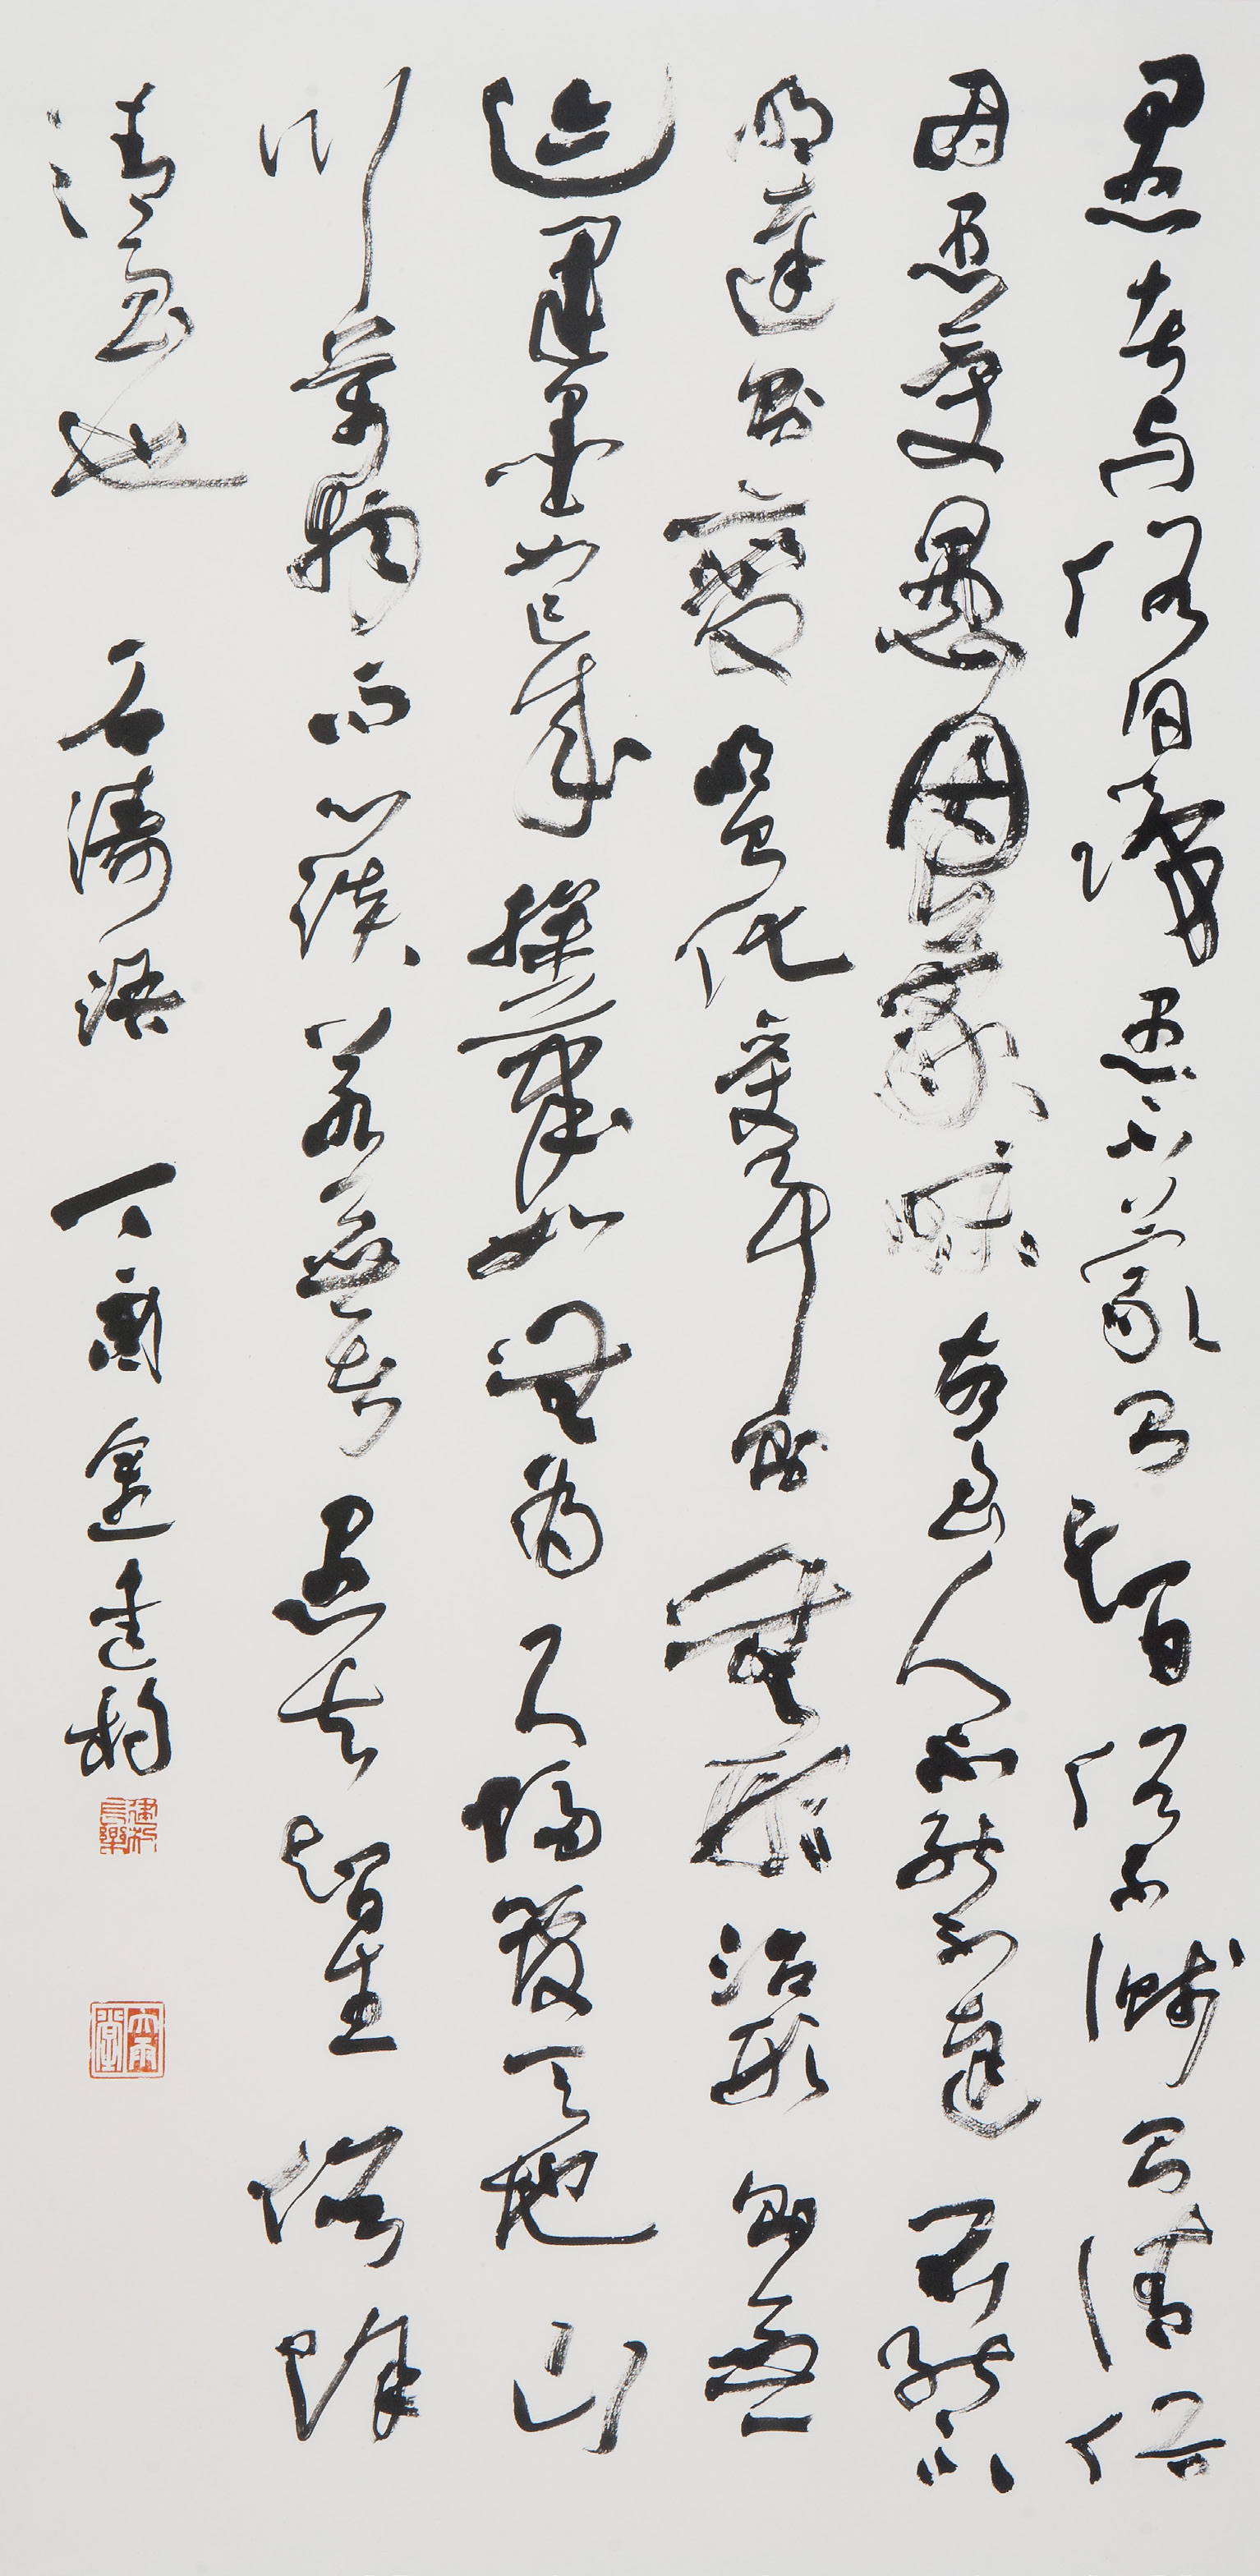 愚者与俗同識愚不蒙則智俗不濺則清俗
因愚受愚因蒙昧故至人不能不達不能不
明達則變明則化受事則無形治形則無
迹運墨如已成操筆如無為尺幅管天地山
川萬物而心淡若無者愚去智生俗除
清至也 石濤語 丁酉